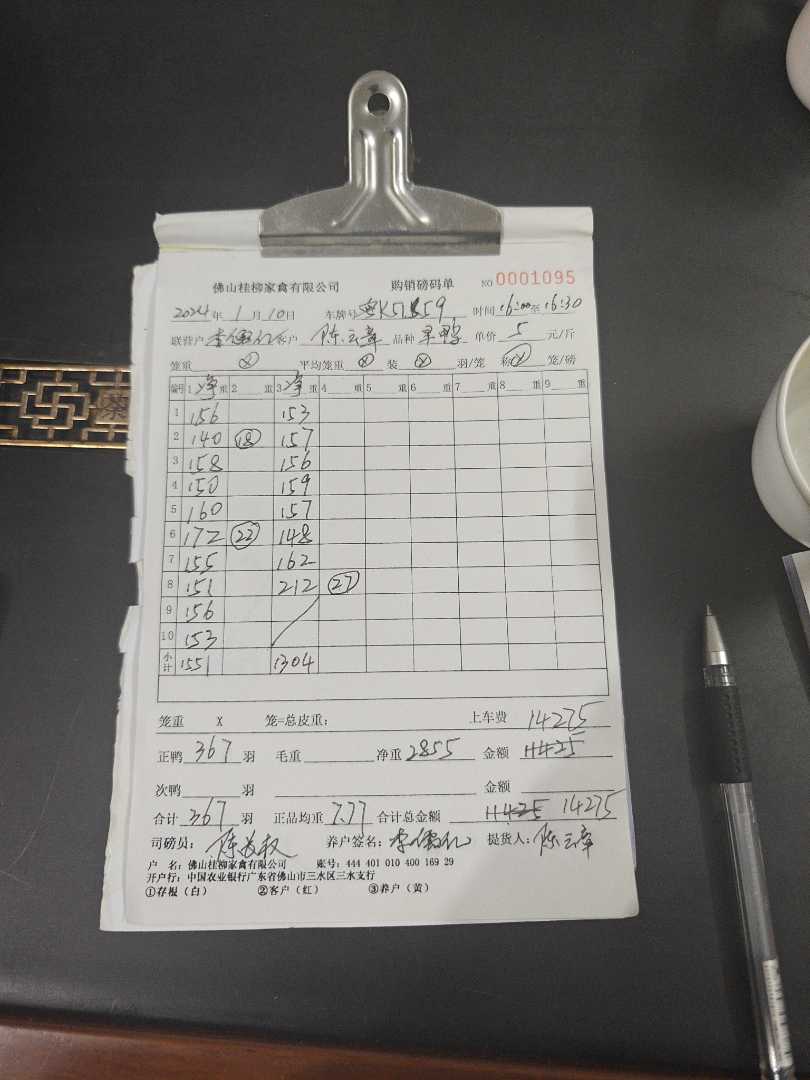 佛山桂柳家禽有限公司 购销磅码单 NO 0001095
2024年 1月 10日 车牌号 粤K51859 时间 16:00至 16:30
联营户 李 客户 陈云章 品种 果鸭 单价 5 元/斤
笼重 ⊗ 平均笼重 ⊗ 装 ⊗ 羽/笼 称 ⊗ 笼/磅
编号 1 净 重 2 重 3 净 重 4 重 5 重 6 重 7 重 8 重 9 重
1 156 153
2 140 18 157
3 158 156
4 150 159
5 160 157
6 172 22 148
7 155 162
8 151 212 27
9 156
10 153
小计 1551 1304
笼重 X 笼=总皮重: 上车费 14275
正鸭 367 羽 毛重 净重 2855 金额 11425
次鸭 羽 金额
合计 367 羽 正品均重 7.77 合计总金额 11425 14275
司磅员: 陈 养户签名: 李 提货人: 陈云章
户 名: 佛山桂柳家禽有限公司 账号: 444 401 010 400 169 29
开户行: 中国农业银行广东省佛山市三水区三水支行
①存根(白) ②客户(红) ③养户(黄)
茶